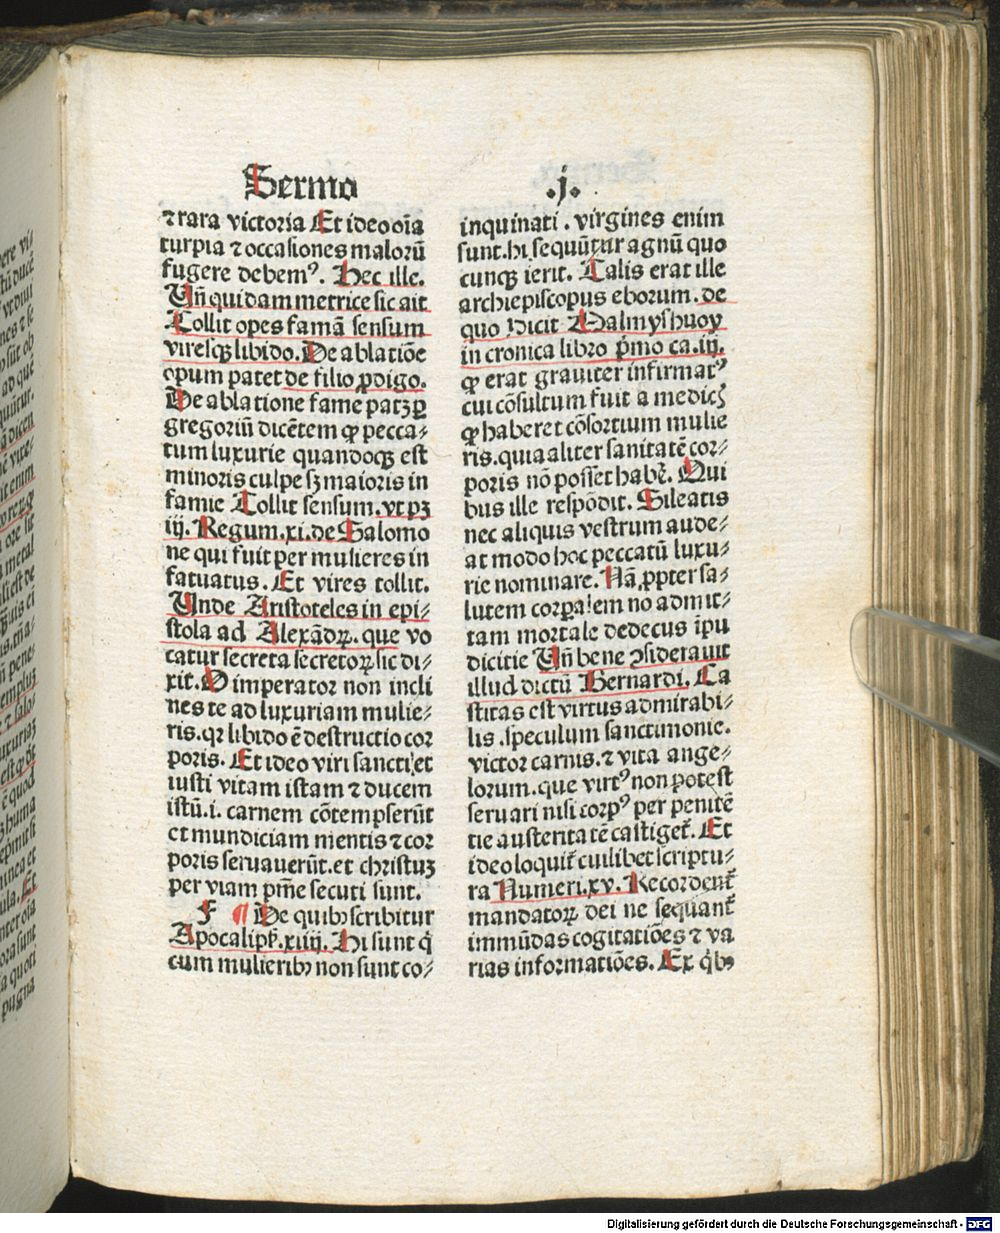 Sermo .j.
⁊ rara victoria Et ideo oīa
turpia ⁊ occasiones malorū
fugere debemꝰ. Hec ille.
Un̄ quidam metrice sic ait
Tollit opes famā sensum
viresqꝫ libido. De ablatiōe
opum patet de filio ꝓdigo.
De ablatione fame patꝫ ꝑ
gregoriū dicētem ꝙ pecca⸗
tum luxurie quandoqꝫ est
minoris culpe sꝫ maioris in
famie Tollit sensum. vt pꝫ
iij. Regum. xi. de Salomo
ne qui fuit per mulieres in
fatuatus. Et vires tollit.
Unde Aristoteles in epi⸗
stola ad Alexādꝝ. que vo
catur secreta secretoꝝ sic di⸗
xit. O imperator non incli
nes te ad luxuriam mulie⸗
ris. qꝛ libido ē destructio cor
poris. Et ideo viri sancti et
iusti vitam istam ⁊ ducem
istū .i. carnem cōtempserūt
et mundiciam mentis ⁊ cor
poris seruauerūt. et christuꝫ
per viam pm̄e secuti sunt.
F ¶ De quibꝫ scribitur
Apocalipſ. xiiij. Hi sunt q̇
cum mulieribꝫ non sunt co⸗
inquinati . virgines enim
sunt. hi sequūtur agnū quo
cunqꝫ ierit. Talis erat ille
archiepiscopus eborum. de
quo dicit Malmyshuoy
in cronica libro p̄mo ca. iij.
ꝙ erat grauiter infirmatꝰ
cui cōsultum fuit a medicꝭ
ꝙ haberet cōsortium mulie
ris. quia aliter sanitatē cor⸗
poris nō posset habꝛ̄. Qui
bus ille respōdit. Sileatis
nec aliquis vestrum aude⸗
at modo hoc peccatū luxu⸗
rie nominare. Nā ꝓpter sa⸗
lutem corꝑalem no admit⸗
tam mortale dedecus īpu
dicitie Un̄ bene ꝯsiderauit
illud dictū Bernardi. Ca
stitas est virtus admirabi⸗
lis. speculum sanctimonie.
victor carnis. ⁊ vita ange⸗
lorum. que virtꝰ non potest
seruari nisi corpꝰ per penitē
tie austeritatē castiget̄. Et
ideo loquit̄ cuilibet scriptu⸗
ra Numeri. xv. Recordent̄
mandatoꝝ dei ne sequant̄
immūdas cogitatiōes ⁊ va
rias informatiōes. Ex q̇bꝫ
Digitalisierung gefördert durch die Deutsche Forschungsgemeinschaft - DFG